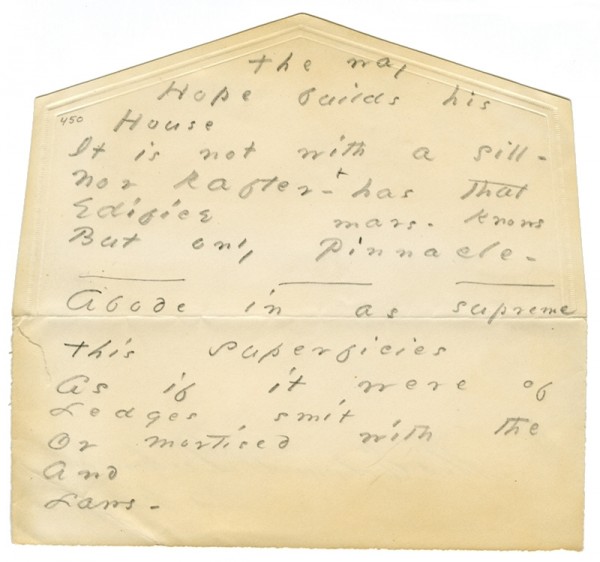 the way
Hope builds his
450
House
It is not with a sill -
Nor Rafter - + has that
Edifice mars - Knows
But only Pinnacle -
Abode in as supreme
this superficies
As if it were of
Ledges smit
Or mortised with the
And
Laws -